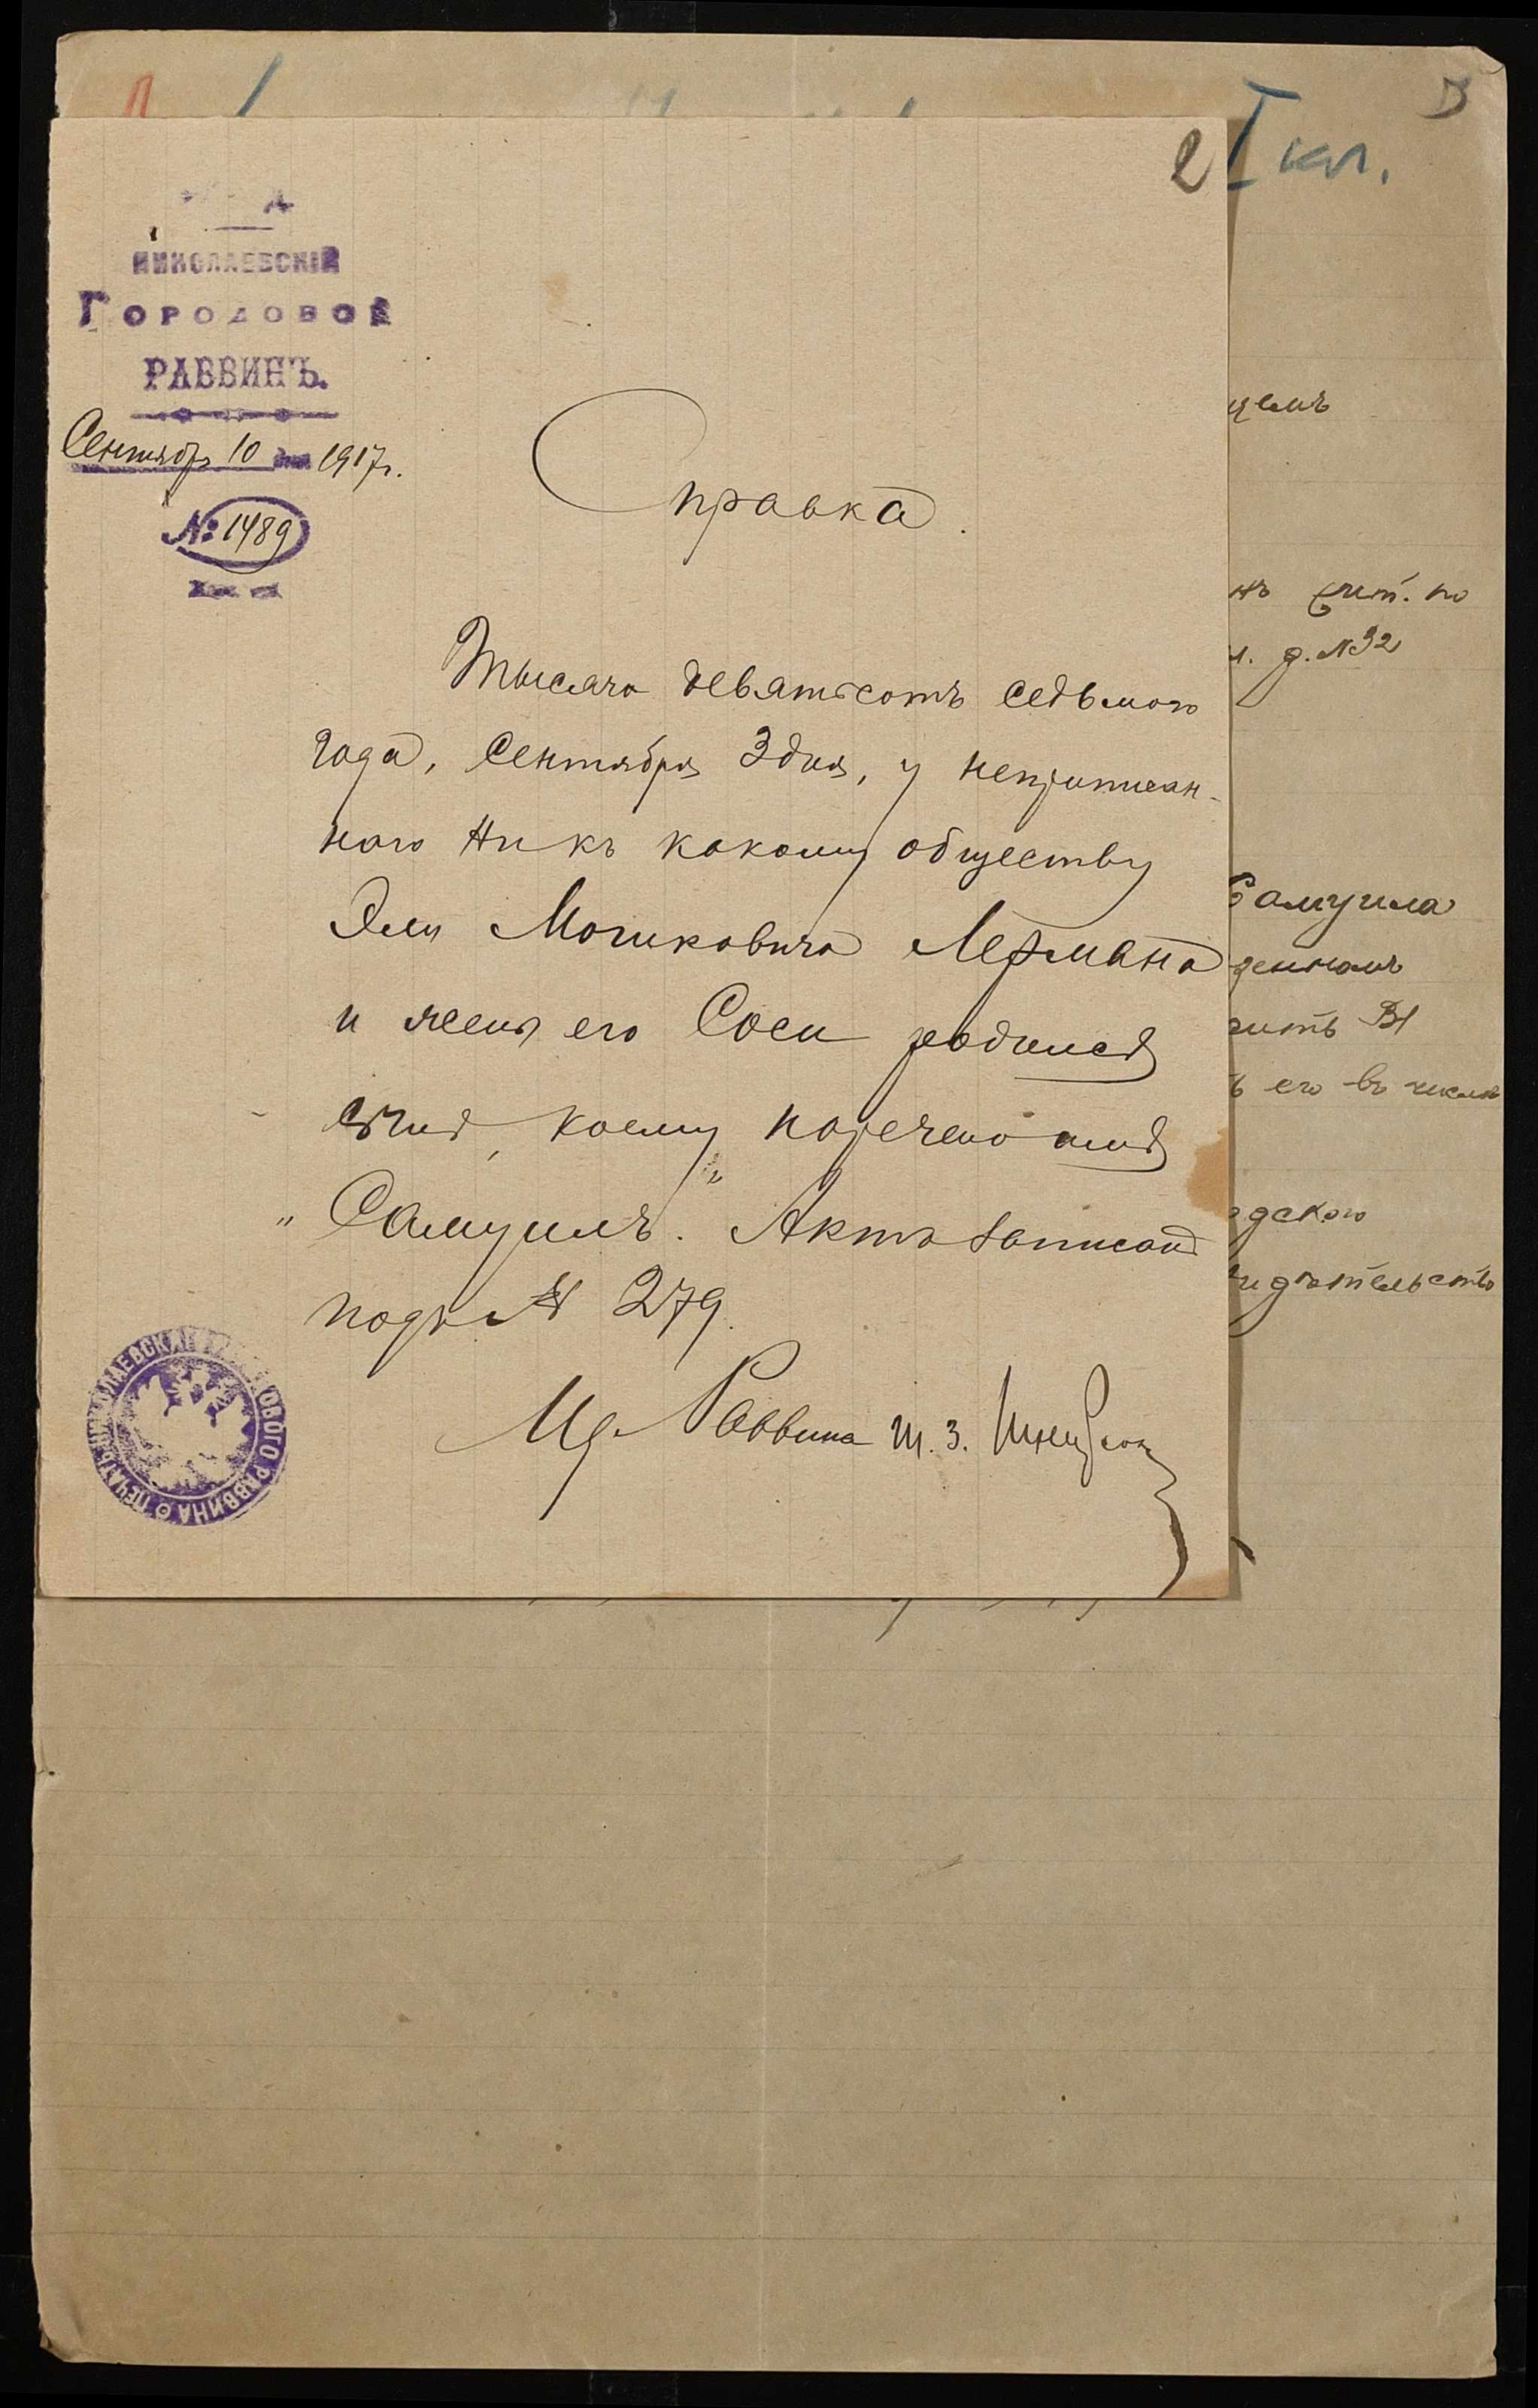 I кл.
2
НИКОЛАЕВСКІЙ
ГОРОДОВОЙ
РАВВИНЪ.
Сентябр 10 дня 1917 г.
№ 1489
Справка.
Тысяча девятьсотъ седьмого
года, Сентября 3 дня, у неприписан-
наго ни къ какому обществу
Эли Мошковича Лермана
и жены его Соси родился
сынъ, коему наречено имя
„Самуилъ". Актъ записанъ
подъ № 279.
Раввина
ПЕЧАТЬ НИКОЛАЕВСКАГО ГОРОДОВОГО РАВВИНА
цемъ
нъ по
д. № 32
Самуила
деннаго
его въ число
одского
идѣтельство